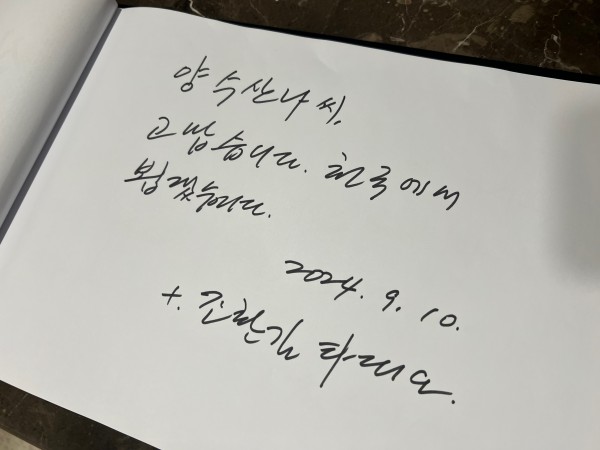 양수산나 씨,
고맙습니다. 천국에서
뵙겠습니다.
2024. 9. 10.
+. 조환길 타대오.